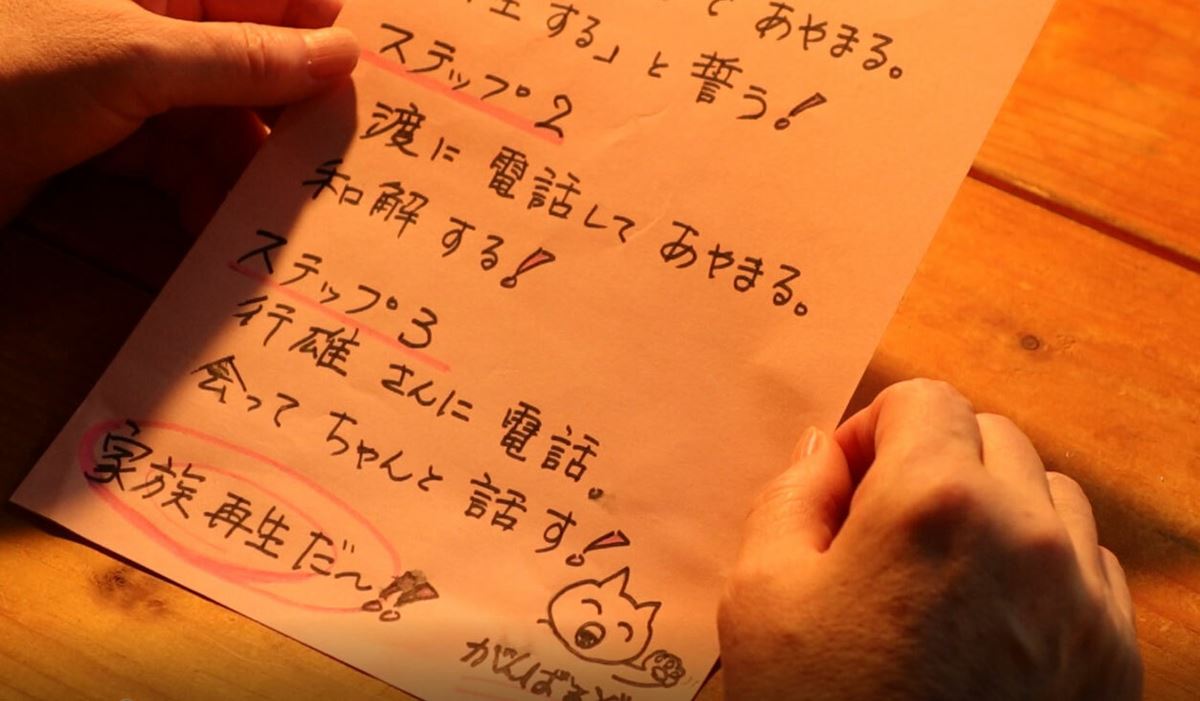 あやまる。
する」と誓う!
ステップ2
渡に電話してあやまる。
和解する!
ステップ3
行雄さんに電話。
会ってちゃんと話す!
家族再生だ〜!!
がんばるぞ